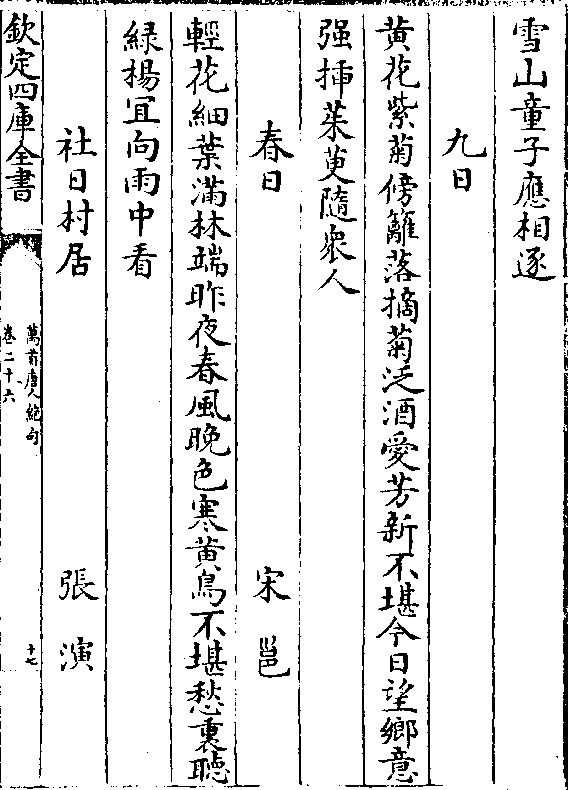 雪山童子應相逐
九日
黄花紫菊傍籬落摘菊泛酒愛芳新不堪今日望鄉意
强揷茱萸隨衆人
春日 宋邕
輕花細葉滿林端昨夜春風晚色寒黄鳥不堪愁裏聽
緑楊宜向雨中看
社日村居 張演
欽定四庫全書
萬首唐人絶句
卷二十六
十七